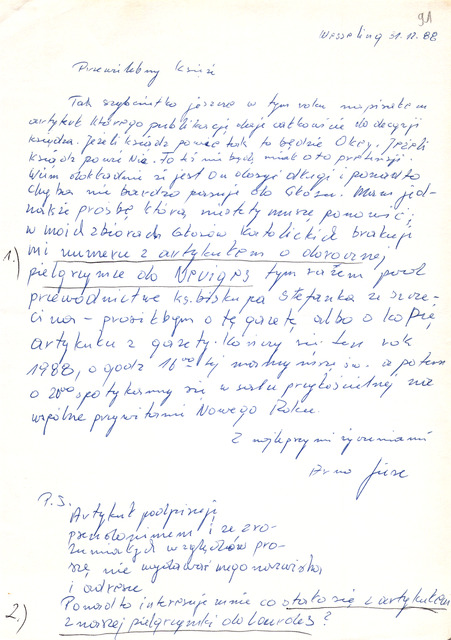 91
Wesseling 31.12.88
Przewielebny Księże
Tak szybciutko jeszcze w tym roku napisałem
artykuł którego publikację daję całkowicie do decyzji
księdza. Jeżeli ksiądz powie tak to będzie Okey. Jeżeli
ksiądz powie Nie. To też nie będę miał o to pretensji.
Wiem dokładnie że jest on dosyć długi i ponadto
chyba nie bardzo pasuje do Głosu. Mam jed-
nakże prośbę którą niestety muszę ponowić;
w moich zbiorach Głosów Katolickich brakuje
1.) mi numeru z artykułem o dorocznej
pielgrzymce do Neviges tym razem pod
przewodnictwem ks. biskupa Stefanka ze Szcze-
cina - prosiłbym o tę gazetę albo o kopię
artykułu z gazety. Kończy się ten rok
1988, o godz 16⁰⁰ tej mamy mszę św. a potem
o 20⁰⁰ spotykamy się w salce przykościelnej na
wspólne przywitanie Nowego Roku.
Z najlepszymi życzeniami
P.S.
Artykuł podpisuję
pseudonimem i ze zro-
zumiałych względów pro-
szę nie wydawać mego nazwiska
i adresu
2.) Ponadto interesuje mnie co stało się z artykułem
z naszej pielgrzymki do Lourdes?